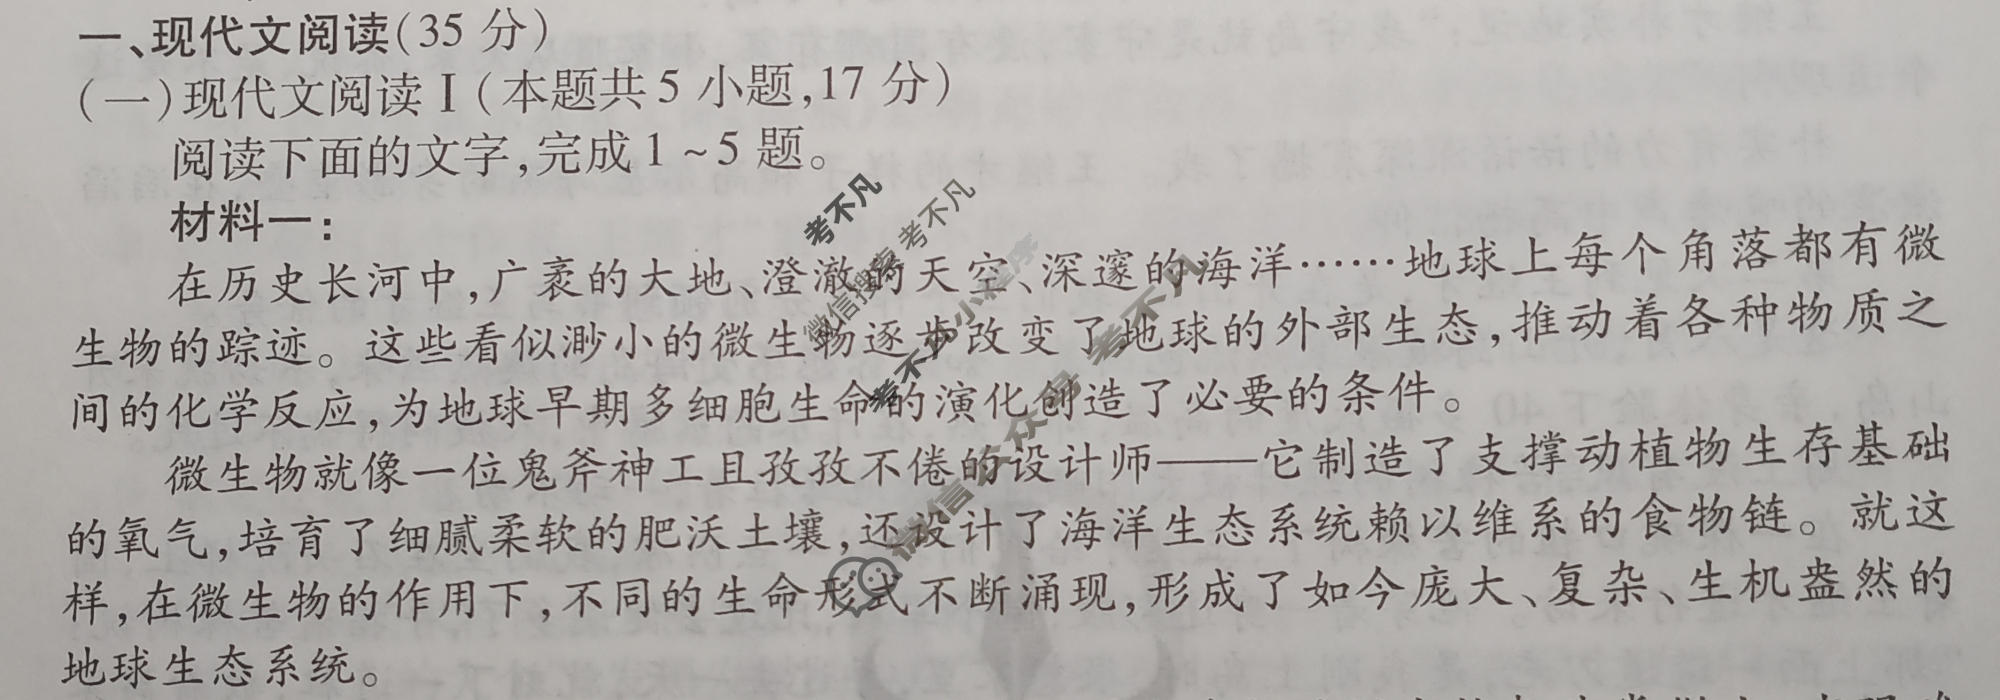 一、现代文阅读(35 分)
(一)现代文阅读 I (本题共 5 小题,17 分)
阅读下面的文字,完成 1 ~ 5 题。
材料一:
在历史长河中,广袤的大地、澄澈的天空、深邃的海洋……地球上每个角落都有微
生物的踪迹。这些看似渺小的微生物逐步改变了地球的外部生态,推动着各种物质之
间的化学反应,为地球早期多细胞生命的演化创造了必要的条件。
微生物就像一位鬼斧神工且孜孜不倦的设计师——它制造了支撑动植物生存基础
的氧气,培育了细腻柔软的肥沃土壤,还设计了海洋生态系统赖以维系的食物链。就这
样,在微生物的作用下,不同的生命形式不断涌现,形成了如今庞大、复杂、生机盎然的
地球生态系统。
考不凡
微信搜索 考不凡
考不凡小程序
微信公众号 考不凡